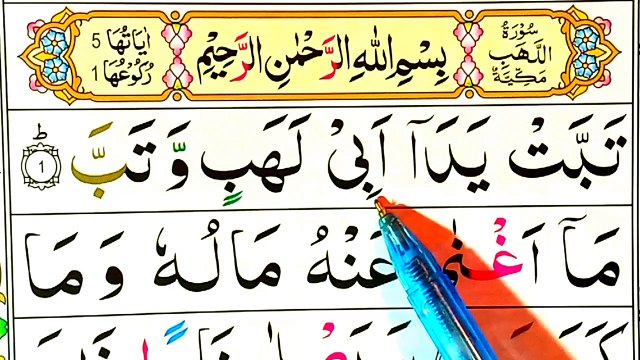 سُوْرَةُ اللَّهَبِ مَكِّيَّةٌ
بِسْمِ اللهِ الرَّحْمٰنِ الرَّحِيْمِ
اٰيَاتُهَا 5
رُكُوْعُهَا 1
تَبَّتْ يَدَاۤ اَبِىْ لَهَبٍ وَّ تَبَّ ؕ 1
مَاۤ اَغْنٰى عَنْهُ مَالُهٗ وَ مَا